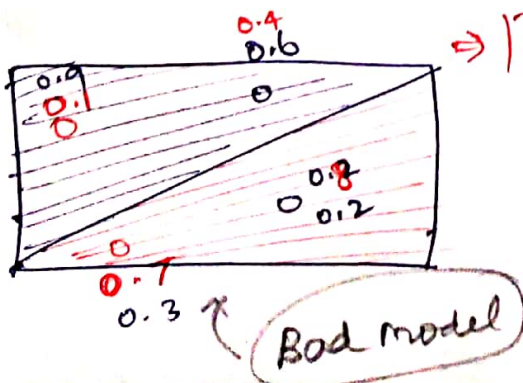 0.4
0.6
0.9
0.1
0.8
0.2
0.7
0.3
Bad model